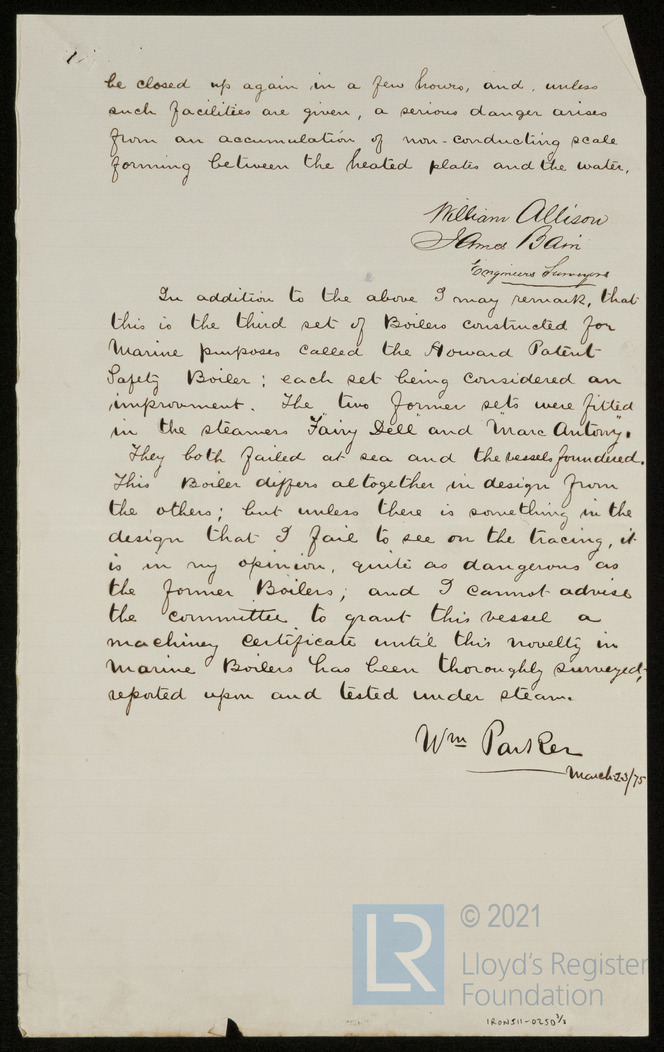 be closed up again in a few hours, and, unless
such facilities are given, a serious danger arises
from an accumulation of non-conducting scale
forming between the heated plates and the water.
William Allison
James Bain
Engineers Surveyors
In addition to the above I may remark, that
this is the third set of Boilers constructed for
Marine purposes called the Howard Patent
Safety Boiler; each set being considered an
improvment. The two former sets were fitted
in the steamers Fairy Dell and "Marc Antony".
They both failed at sea and the vessels foundered.
This Boiler differs altogether in design from
the others; but unless there is something in the
design that I fail to see on the tracing, it
is in my opinion, quite as dangerous as
the former Boilers; and I cannot advise
the committee to grant this vessel a
machiney certificate until this novelty in
Marine Boilers has been thoroughly surveyed,
reported upon and tested under steam.
Wm Parker
March 23/75
LR
© 2021
Lloyd's Register
Foundation
IRON511-0250 2/2